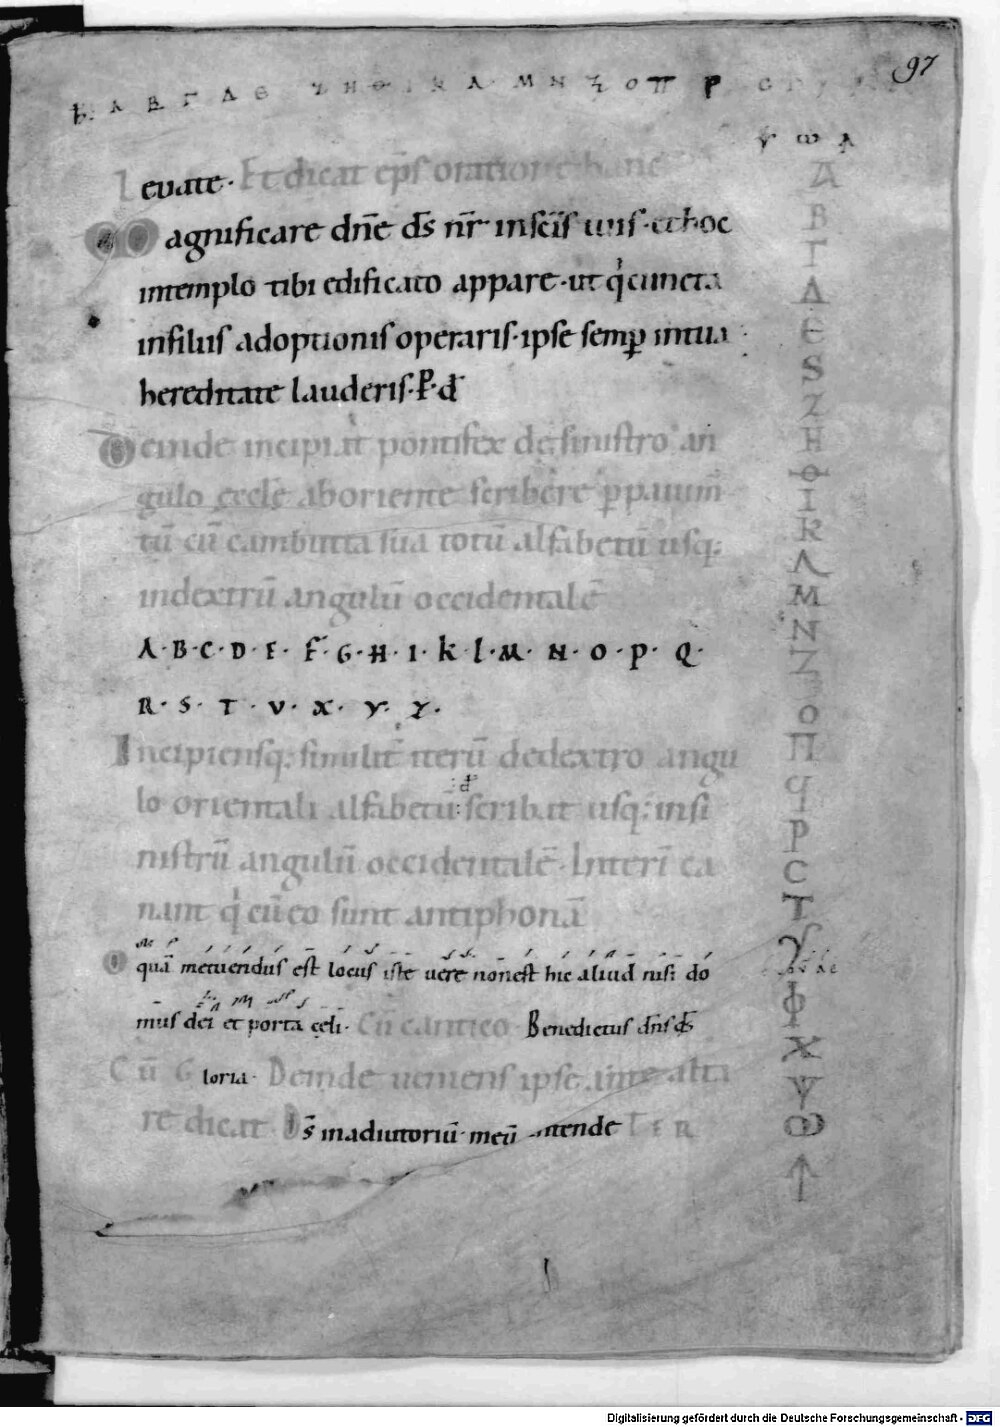 97
Α Β Γ Δ Θ Ζ Η Θ Ι Κ Λ Μ Ν Ξ Ο Π Ρ C Τ Υ
Ψ ω
Leuate· Et dicat ep̄s oratione hanc
Magnificare dn̄e ds̄ nr̄ in sc̄is tuis· et hoc
intemplo tibi edificato appare· ut q̇ cuncta
infiliis adoptionis operaris· ipse semp̄ intua
hereditate lauderis· P· d
Deinde incipiat pontifex de sinistro an
gulo ęcclę aboriente scribere p pauim̄
tū cū cambutta sua totū alfabetū usq;
indextrū angulū occidentalē
A·B·C·D·E·F·G·H·I·K·L·M·N·O·P·Q·
R·S·T·V·X·Y·Z·
Incipiensq; similit̄ iterū dedextro angu
lo orientali alfabetū scribat usq; insi
nistrū angulū occidentalē· Interī ca
nant q̇ cū eo sunt antiphonā
O quā metuendus est̄ locus iste uere non est hic aliud nisi do
mus dei et porta cęli· Cū cantico Benedictus dn̄s ds̄
Cū Gloria· Deinde ueniens ipse ante alta
re dicat Ds̄ inadiutoriū meū intende TER
Α
Β
Γ
Δ
Ε
S
Ζ
Η
Θ
Ι
Κ
Λ
Μ
Ν
Ξ
Ο
Π
Ϥ
Ρ
C
Τ
Υ
Φ
Χ
Ψ
ω
↑
Digitalisierung gefördert durch die Deutsche Forschungsgemeinschaft - DFG